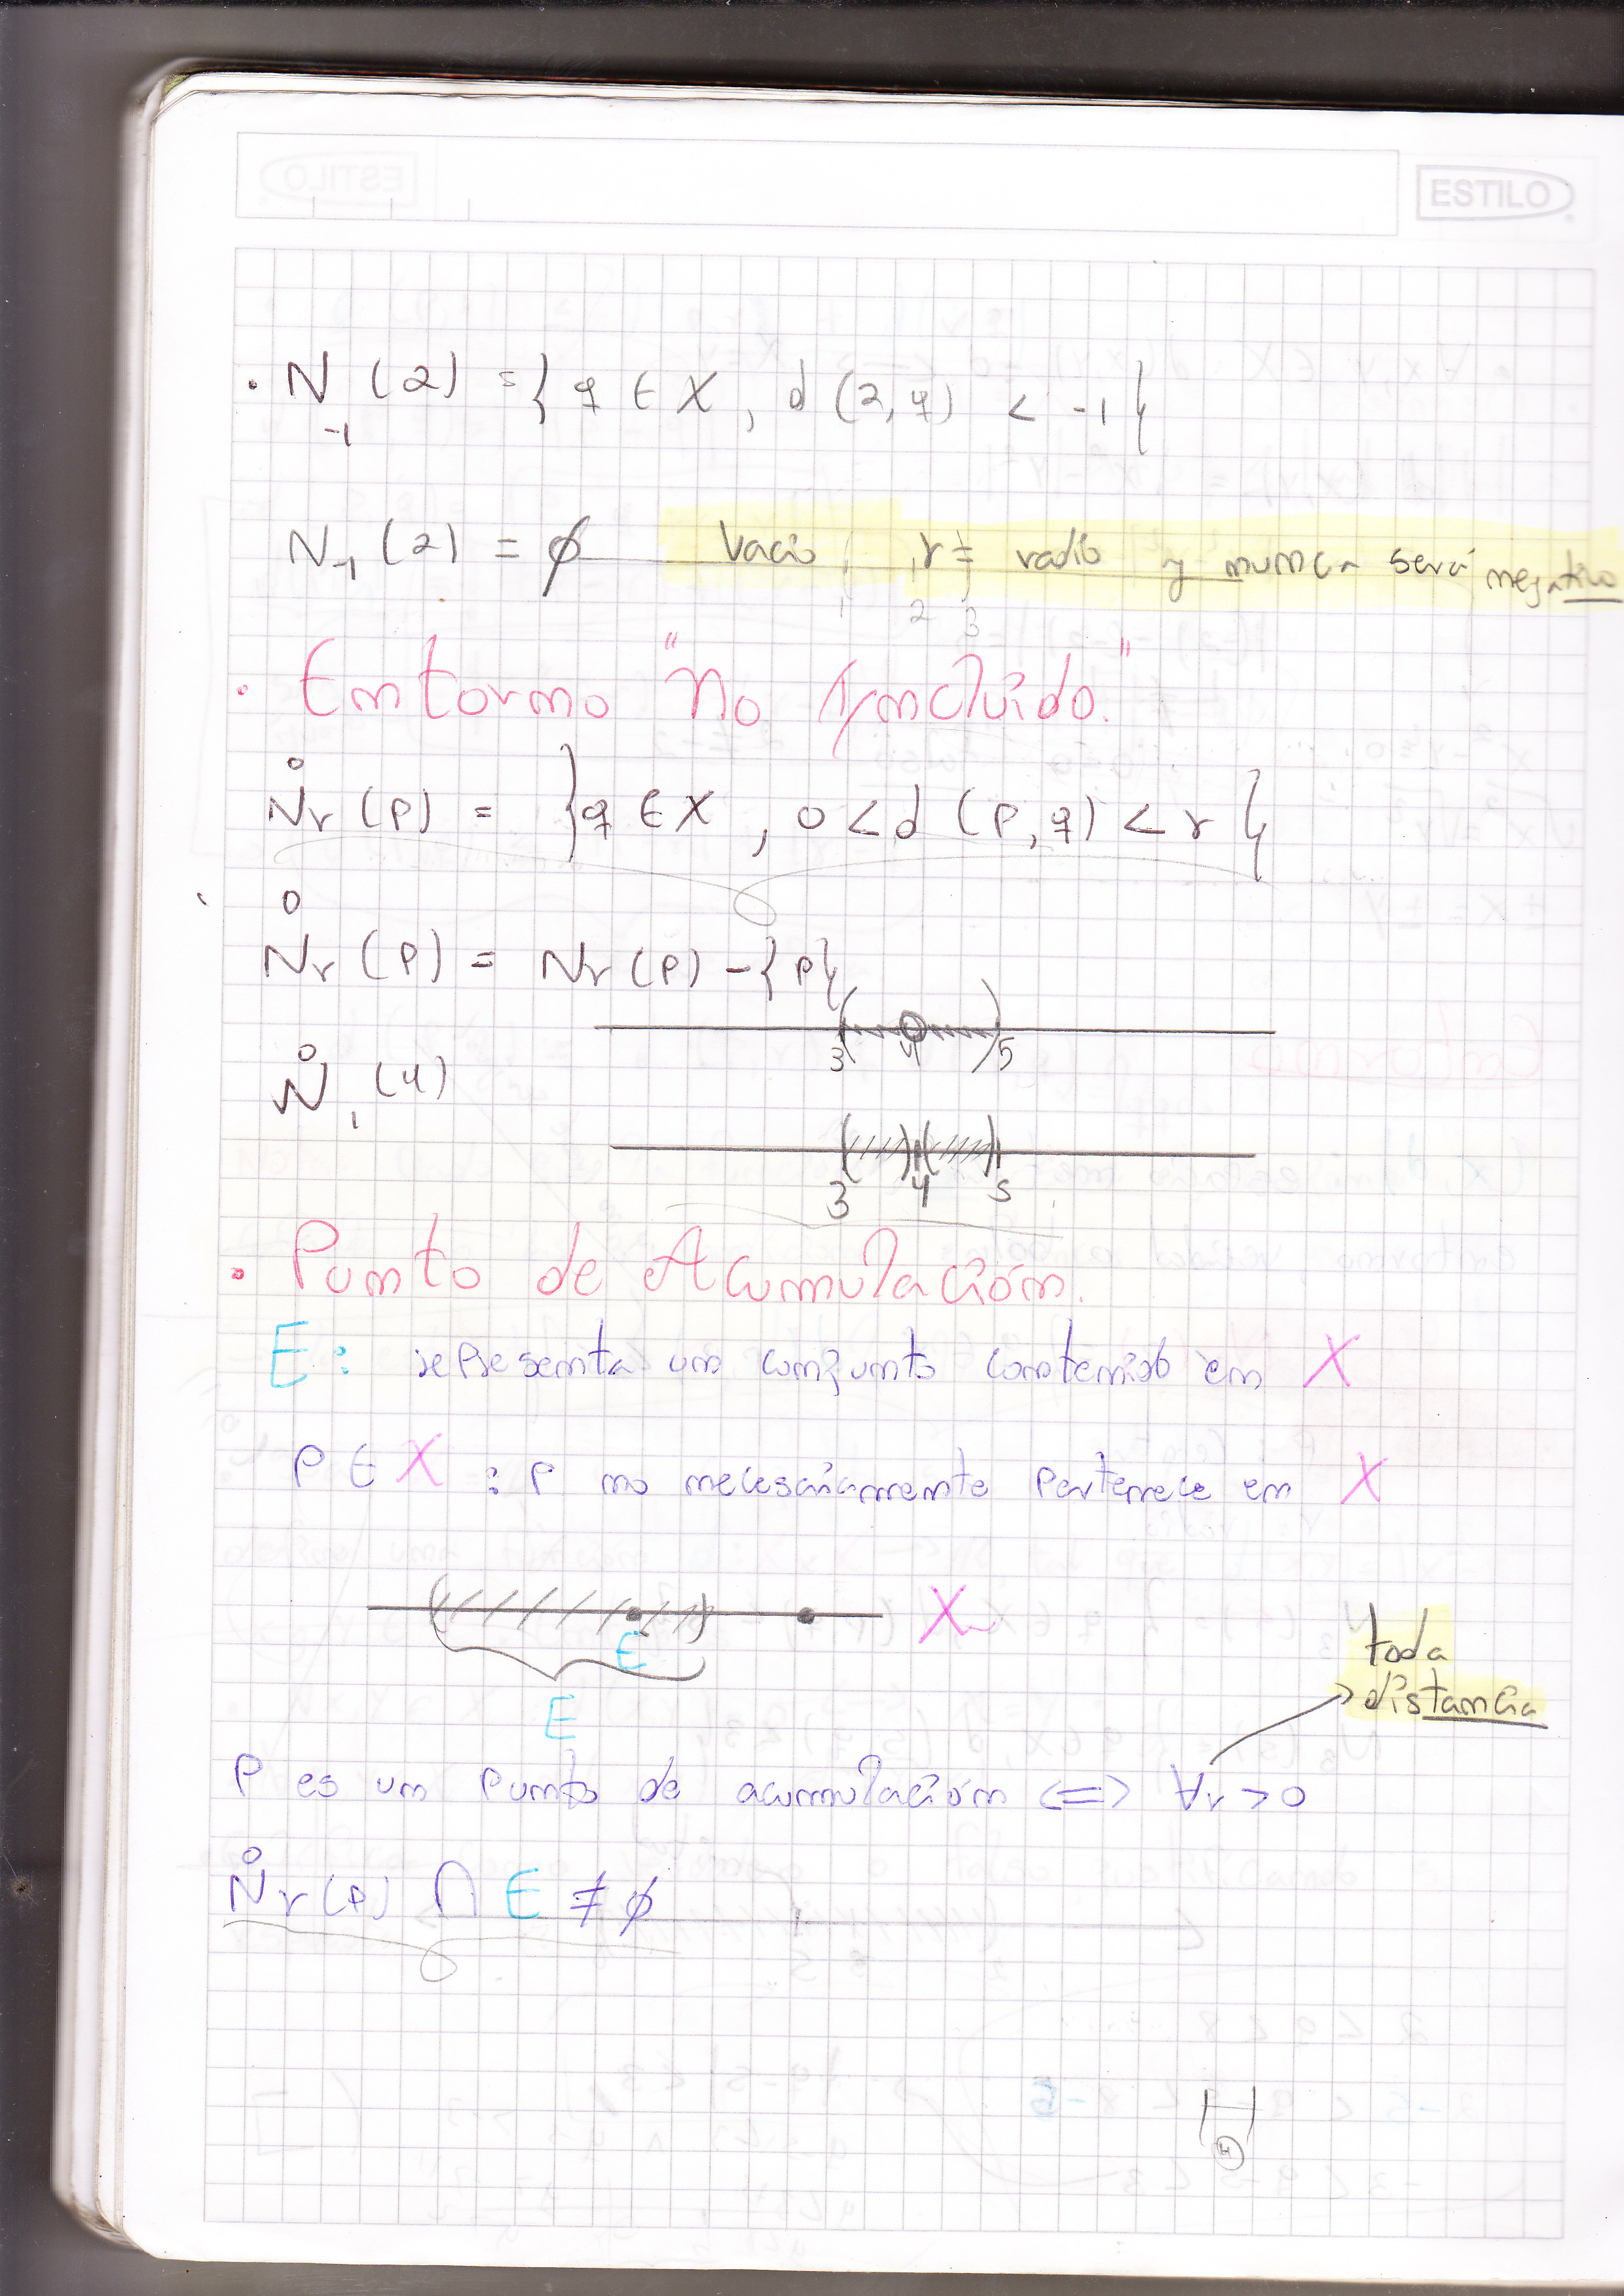 ESTILO
. N-1 (2) = { q ∈ X , d (2, q) < -1 }
N-1 (2) = ϕ Vacio r = radio y nunca será negativo
1 2 3
. Entorno "No Incluido."
N̊r (p) = { q ∈ X , 0 < d (p, q) < r }
N̊r (p) = Nr (p) - {p}
3 4 5
N̊1 (4)
3 4 5
. Punto de Acumulación.
E : representa un conjunto contenido en X
P ∈ X : P no necesariamente pertenece en X
X
E
E
toda
distancia
P es un punto de acumulación <=> ∀r > 0
N̊r (p) ∩ E ≠ ϕ